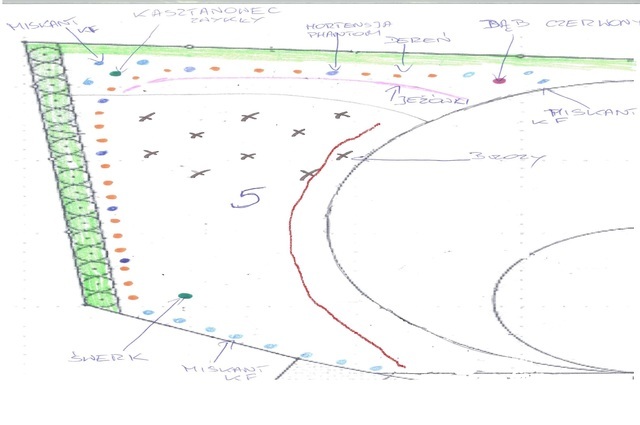 KASZTANOWEC
ZWYKŁY
MISKANT
KF
HORTENSJA
PHANTOM
DEREŃ
DĄB CZERWONY
JEŻÓWKI
MISKANT
KF
BRZOZY
5
ŚWIERK
MISKANT
KF